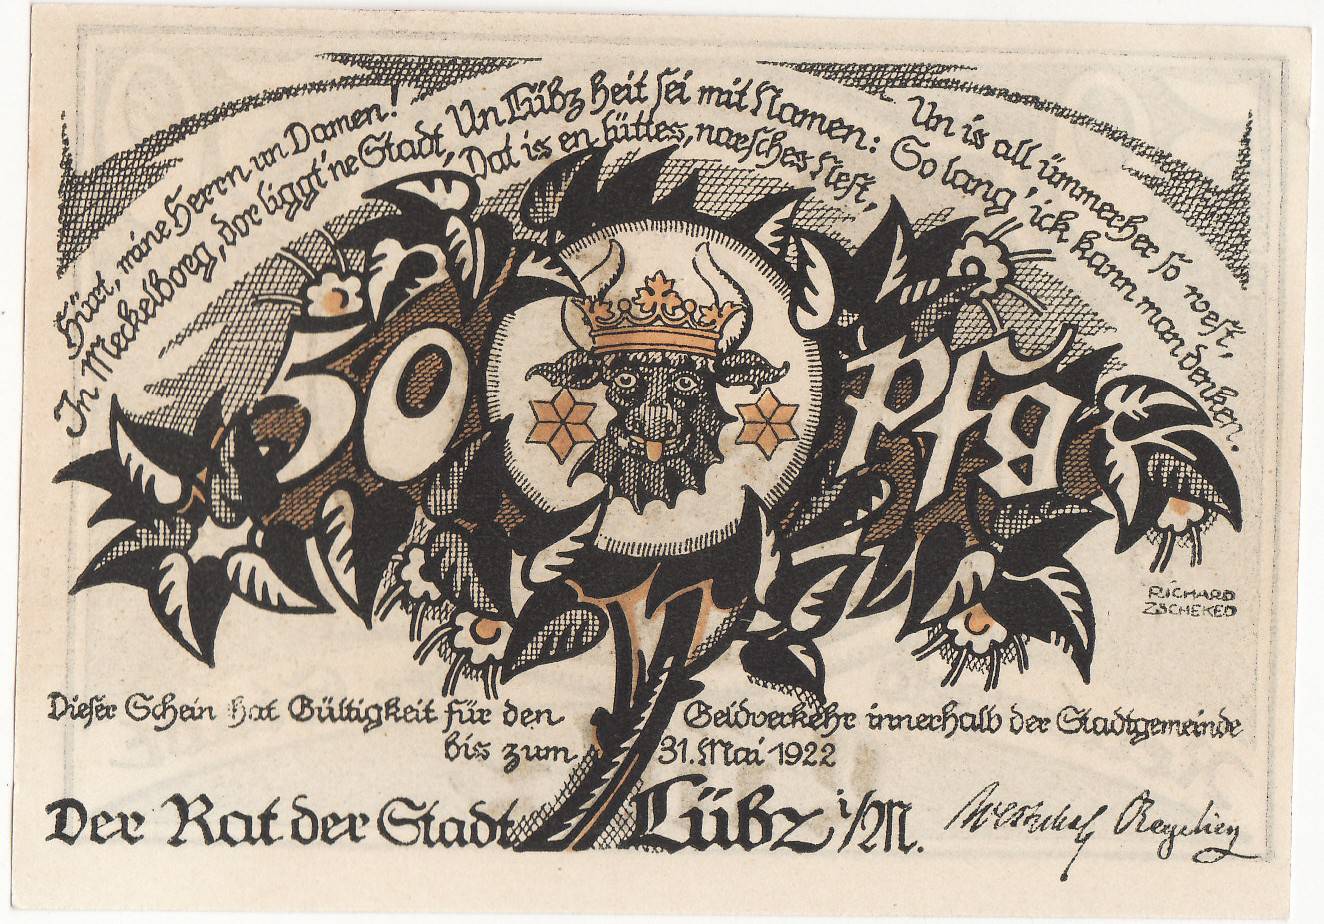 Hüret, mäne Herrn un Damen!
In Meckelborg, dor liggt 'ne Stadt,
Un Lübz heit sei mit Namen:
Dat is en lüttes, narsches Nest,
Un is all ümmerher so west,
So lang' ick kann man denken.
50 Pfg
RICHARD
ZSCHEKED
Dieser Schein hat Gültigkeit für den Geldverkehr innerhalb der Stadtgemeinde
bis zum 31. Mai 1922
Der Rat der Stadt Lübz i/M.